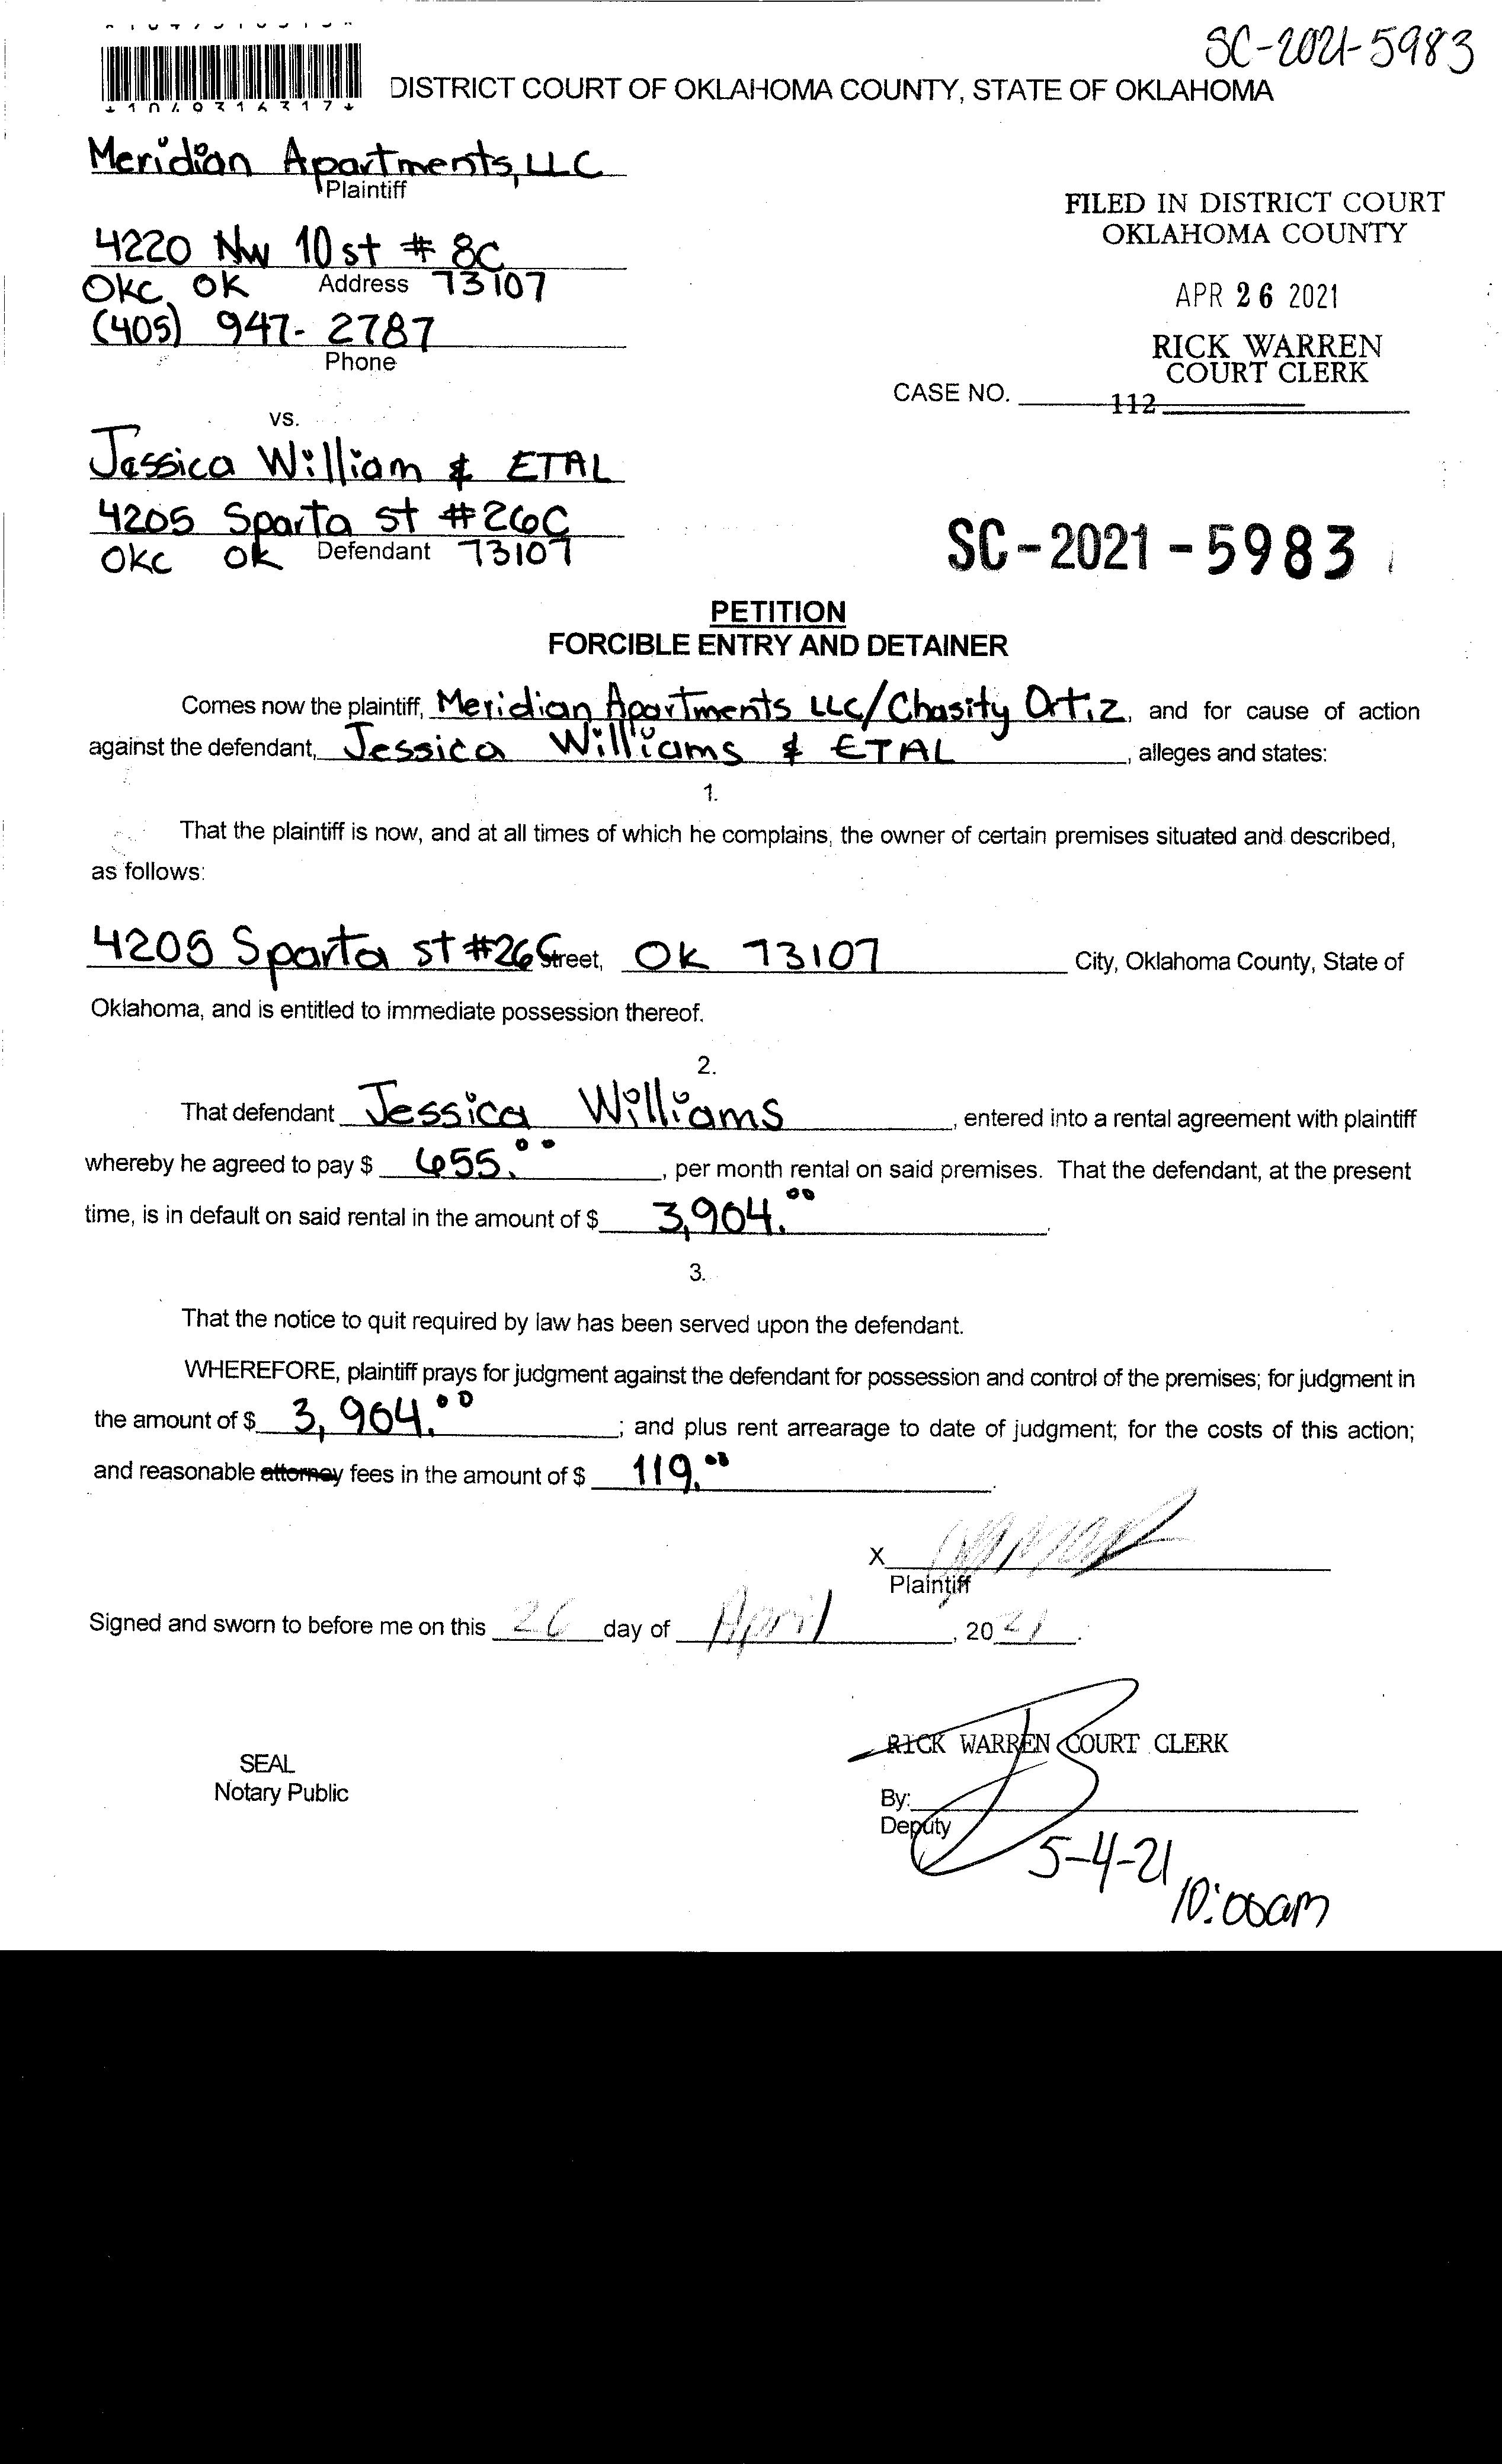 SC-2021-5983
DISTRICT COURT OF OKLAHOMA COUNTY, STATE OF OKLAHOMA
Meridian Apartments, LLC
Plaintiff
FILED IN DISTRICT COURT
OKLAHOMA COUNTY
4220 NW 10 st # 8C
OKC, OK Address 73107
APR 26 2021
(405) 947-2787
Phone
RICK WARREN
COURT CLERK
CASE NO. 112
vs.
Jessica William & ETAL
4205 Sparta st #26C
OKC OK Defendant 73107
SC-2021-5983
PETITION
FORCIBLE ENTRY AND DETAINER
Comes now the plaintiff, Meridian Apartments LLC/Chasity Ortiz, and for cause of action
against the defendant, Jessica Williams & ETAL, alleges and states:
1.
That the plaintiff is now, and at all times of which he complains, the owner of certain premises situated and described,
as follows:
4205 Sparta st #26C Street, OK 73107 City, Oklahoma County, State of
Oklahoma, and is entitled to immediate possession thereof.
2.
That defendant Jessica Williams, entered into a rental agreement with plaintiff
whereby he agreed to pay $ 655.00, per month rental on said premises. That the defendant, at the present
time, is in default on said rental in the amount of $ 3,904.00.
3.
That the notice to quit required by law has been served upon the defendant.
WHEREFORE, plaintiff prays for judgment against the defendant for possession and control of the premises; for judgment in
the amount of $ 3,904.00; and plus rent arrearage to date of judgment; for the costs of this action;
and reasonable attorney fees in the amount of $ 119.00.
X
Plaintiff
Signed and sworn to before me on this 26 day of April, 2021.
RICK WARREN COURT CLERK
SEAL
Notary Public
By:
Deputy
5-4-21
10:00am